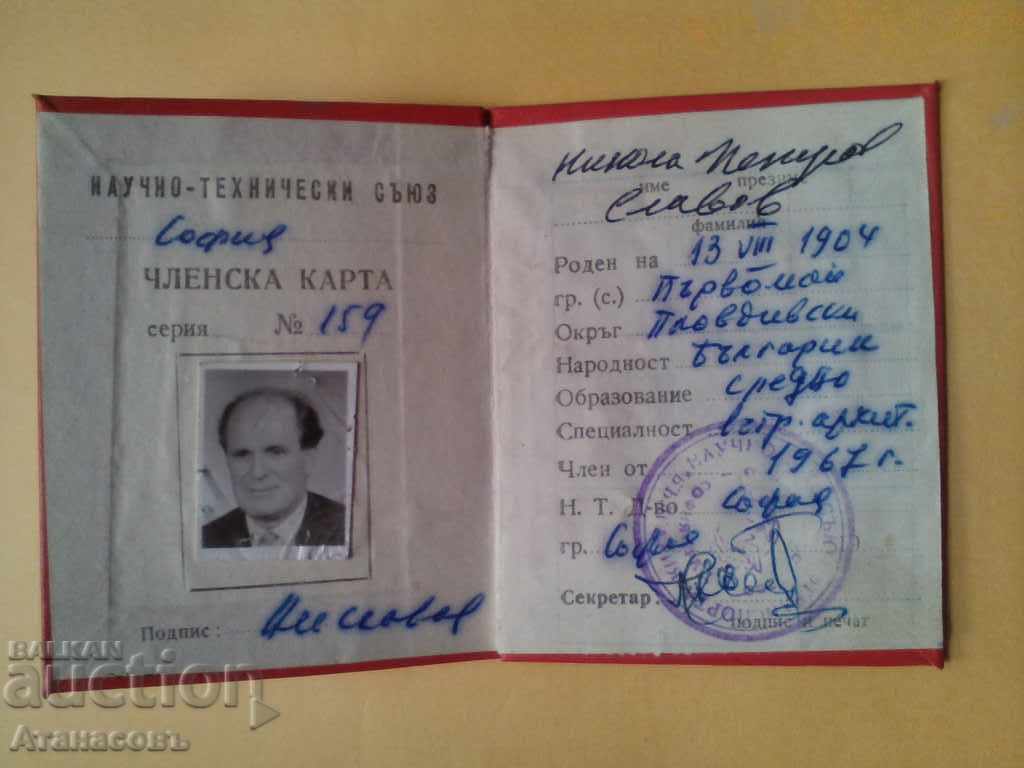 НАУЧНО-ТЕХНИЧЕСКИ СЪЮЗ
София
ЧЛЕНСКА КАРТА
серия № 159
Подпис:
Никола
име презиме
Славов
фамилия
Роден на 13 VIII 1904
гр. (с.) Първомай
Окръг Пловдивски
Народност българин
Образование средно
Специалност вътр. архит.
Член от 1967 г.
Н. Т. Д-во София
гр. София
Секретар:
подпис и печат
BALKAN
auction
Атанасовъ